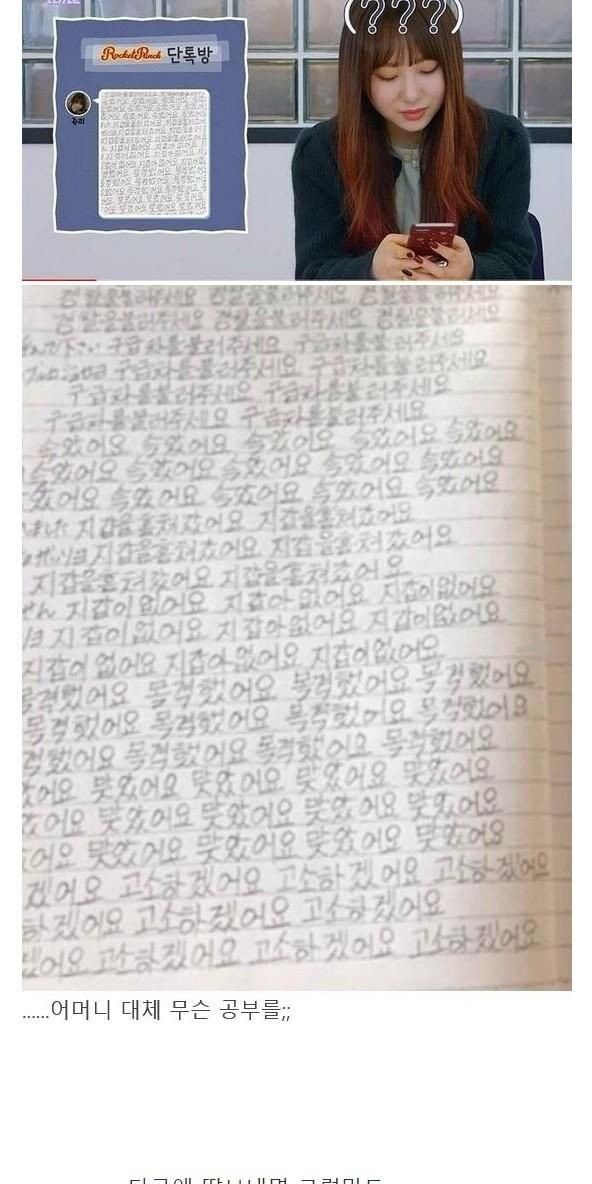 (???)
Rocket Punch 단톡방
쥬리
경찰을불러주세요 경찰을불러주세요 경찰을불러주세요
경찰을불러주세요 경찰을불러주세요 경찰을불러주세요
구급차를불러주세요 구급차를불러주세요
구급차를불러주세요 구급차를불러주세요
구급차를불러주세요 구급차를불러주세요
구급차를불러주세요 구급차를불러주세요
속았어요 속았어요 속았어요 속았어요 속았어요
속았어요 속았어요 속았어요 속았어요 속았어요
속았어요 속았어요 속았어요 속았어요 속았어요
ました 지갑을훔쳐갔어요 지갑을훔쳐갔어요
지갑을훔쳐갔어요 지갑을훔쳐갔어요
지갑을훔쳐갔어요 지갑을훔쳐갔어요
せん 지갑이없어요 지갑아없어요 지갑이없어요
지갑이없어요 지갑아없어요 지갑이없어요
지갑이없어요 지갑아없어요 지갑이없어요
목격했어요 목격했어요 목격했어요 목격했어요
목격했어요 목격했어요 목격했어요 목격했어요
격했어요 목격했어요 목격했어요 목격했어요
았어요 맞았어요 맞았어요 맞았어요 맞았어요
았어요 맞았어요 맞았어요 맞았어요 맞았어요
어요 맞았어요 맞았어요 맞았어요 맞았어요
겠어요 고소하겠어요 고소하겠어요 고소하겠어요
하겠어요 고소하겠어요 고소하겠어요
겠어요 고소하겠어요 고소하겠어요 고소하겠어요
......어머니 대체 무슨 공부를;;